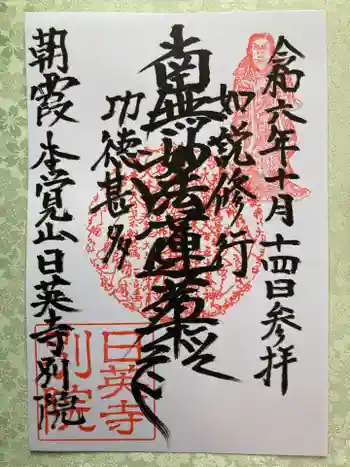 令和六年十月十四日参拝
如説修行
南無妙法蓮華経
功徳甚多
朝霞 本覚山日英寺別院
日英寺
別院